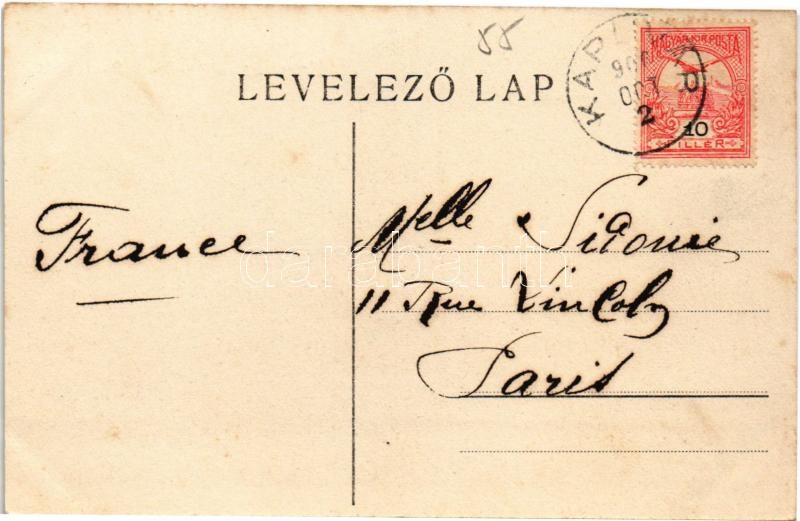 55
LEVELEZŐ LAP
MAGYAR KIR. POSTA
10
FILLÉR
906
OCT
2
France
Melle Sidonie
11 Rue Lincoln
Paris
darabanth